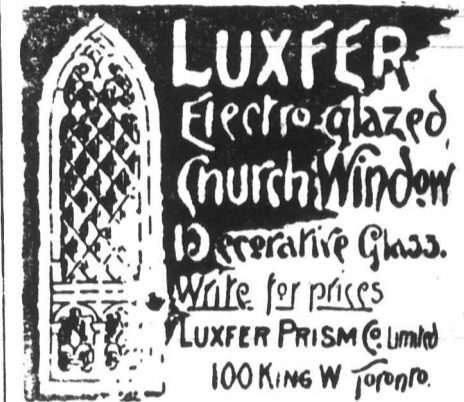 LUXFER
Electro-glazed
Church Window
Decorative Glass.
Write for prices
LUXFER PRISM Co. Limited
100 KING W Toronto.